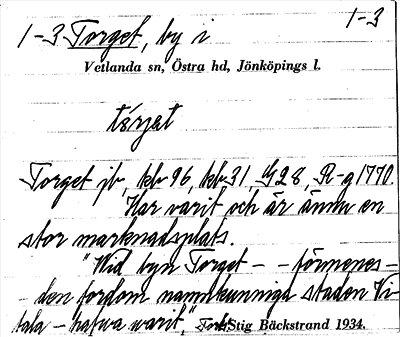 1-3
1-3 Torget, by i
Vetlanda sn, Östra hd, Jönköpings l.
Torget jb, kb 96, kb 31, G28, R-g 1770.
Har varit och är ännu en
stor marknadsplats.
"Wid byn Torget - - förmenes -
- den fordom namnkunniga staden Vi-
tala - hafwa warit",
Stig Bäckstrand 1934.